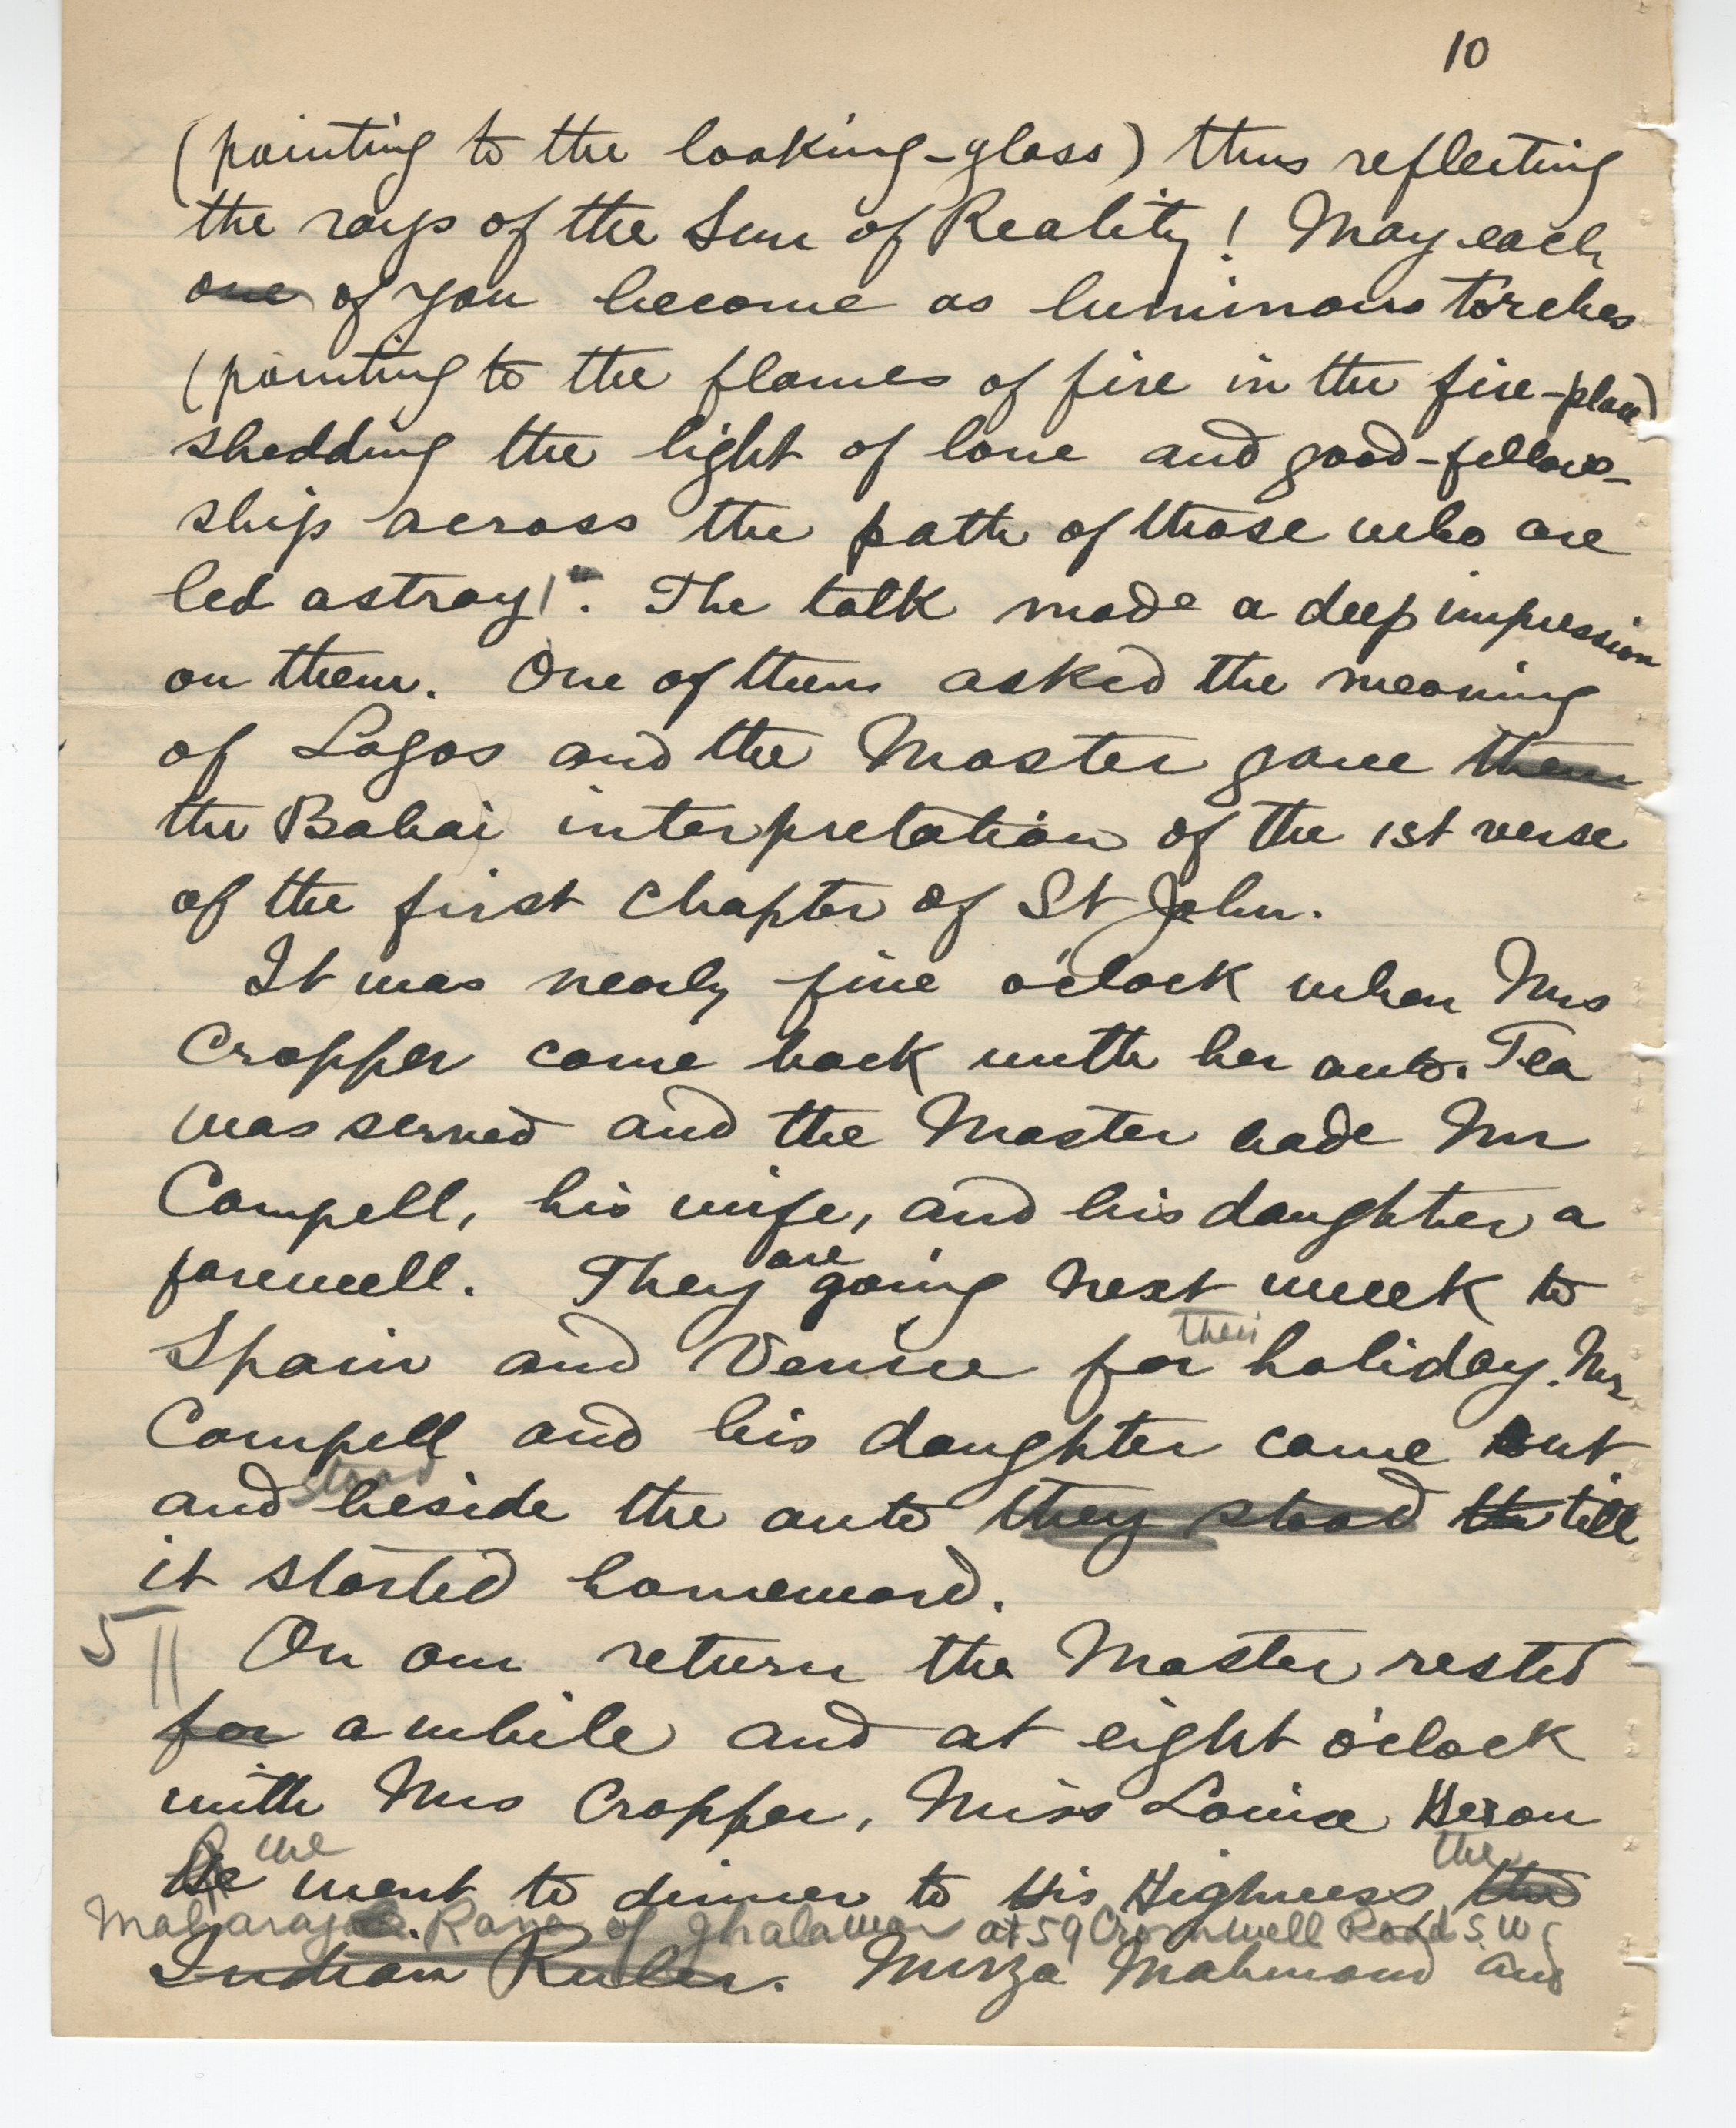 10
(pointing to the looking-glass) thus reflecting
the rays of the Sun of Reality! May each
one of you become as luminous torches
(pointing to the flames of fire in the fire-place)
shedding the light of love and good-fellow-
ship across the path of those who are
led astray!". The talk made a deep impression
on them. One of them asked the meaning
of Logos and the Master gave them
the Bahai interpretation of the 1st verse
of the first chapter of St John.
It was nearly five o'clock when Mrs
Cropper came back with her auto. Tea
was served and the Master bade Mr
Campell, his wife, and his daughter a
farewell. They are going next week to
Spain and Venice for their holiday. Mr
Campell and his daughter came out
and stood beside the auto they stood the till
it started homeward.
5 || On our return the Master rested
for a while and at eight o'clock
with Mrs Cropper, Miss Louise Heron
we the
He went to dinner to His Highness the
Maharaja Rana of Jhalawar at 59 Cromwell Road S.W.
Indian Ruler. Mirza Mahmoud and